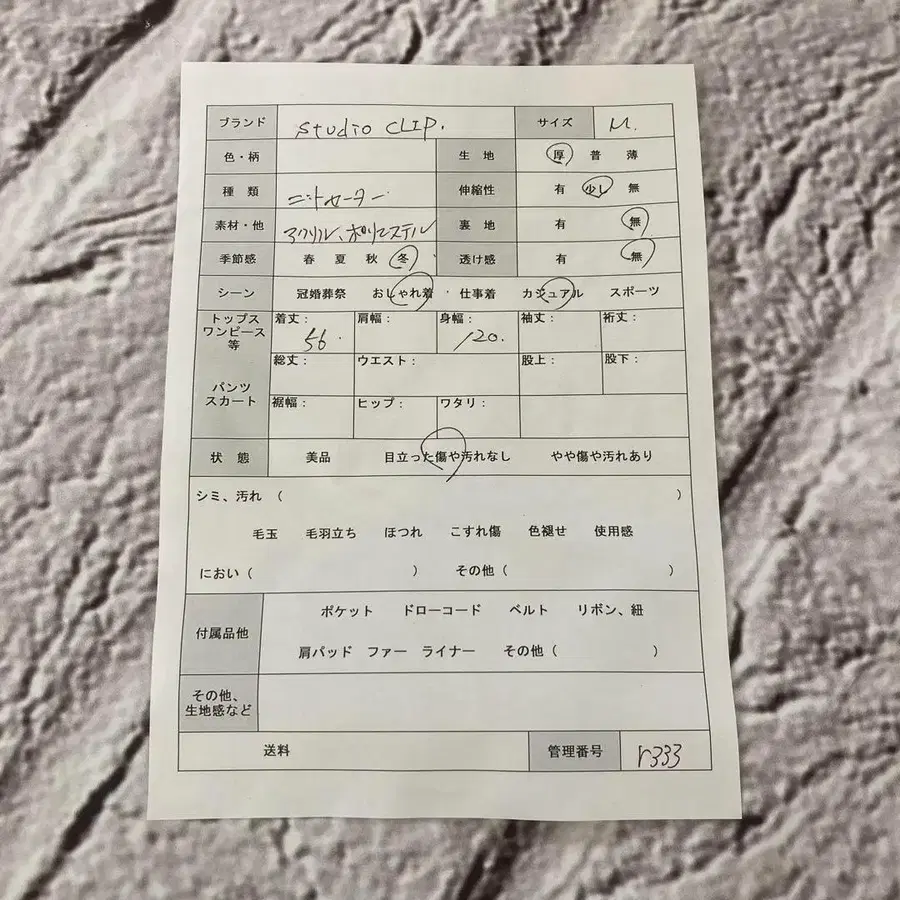 ブランド studio CLIP. サイズ M.
色・柄 生地 厚 普 薄
種類 ニットセーター 伸縮性 有 少し 無
素材・他 アクリル、ポリエステル 裏地 有 無
季節感 春 夏 秋 冬 透け感 有 無
シーン 冠婚葬祭 おしゃれ着 ・ 仕事着 カジュアル スポーツ
トップス ワンピース 等 着丈: 56. 肩幅: 身幅: 120. 袖丈: 裄丈:
パンツ スカート 総丈: ウエスト: 股上: 股下:
裾幅: ヒップ: ワタリ:
状態 美品 目立った傷や汚れなし やや傷や汚れあり
シミ、汚れ ( )
毛玉 毛羽立ち ほつれ こすれ傷 色褪せ 使用感
におい ( ) その他 ( )
付属品他 ポケット ドローコード ベルト リボン、紐
肩パッド ファー ライナー その他 ( )
その他、
生地感など
送料 管理番号 r333